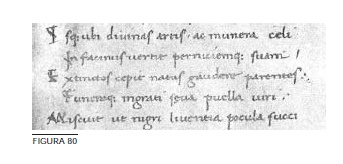 sq; ubi diuinas artis ac munera celi
In facinus uertit perniciemq; suam
Extinctos cepit natus gaudere parentes
Funereq; ingrati seua puella uiri
Miscuit ut nigri liuentia pocula succi
FIGURA 80